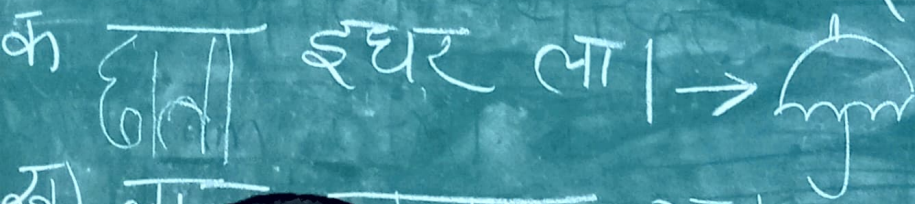 क छाता इधर ला । →
ख)